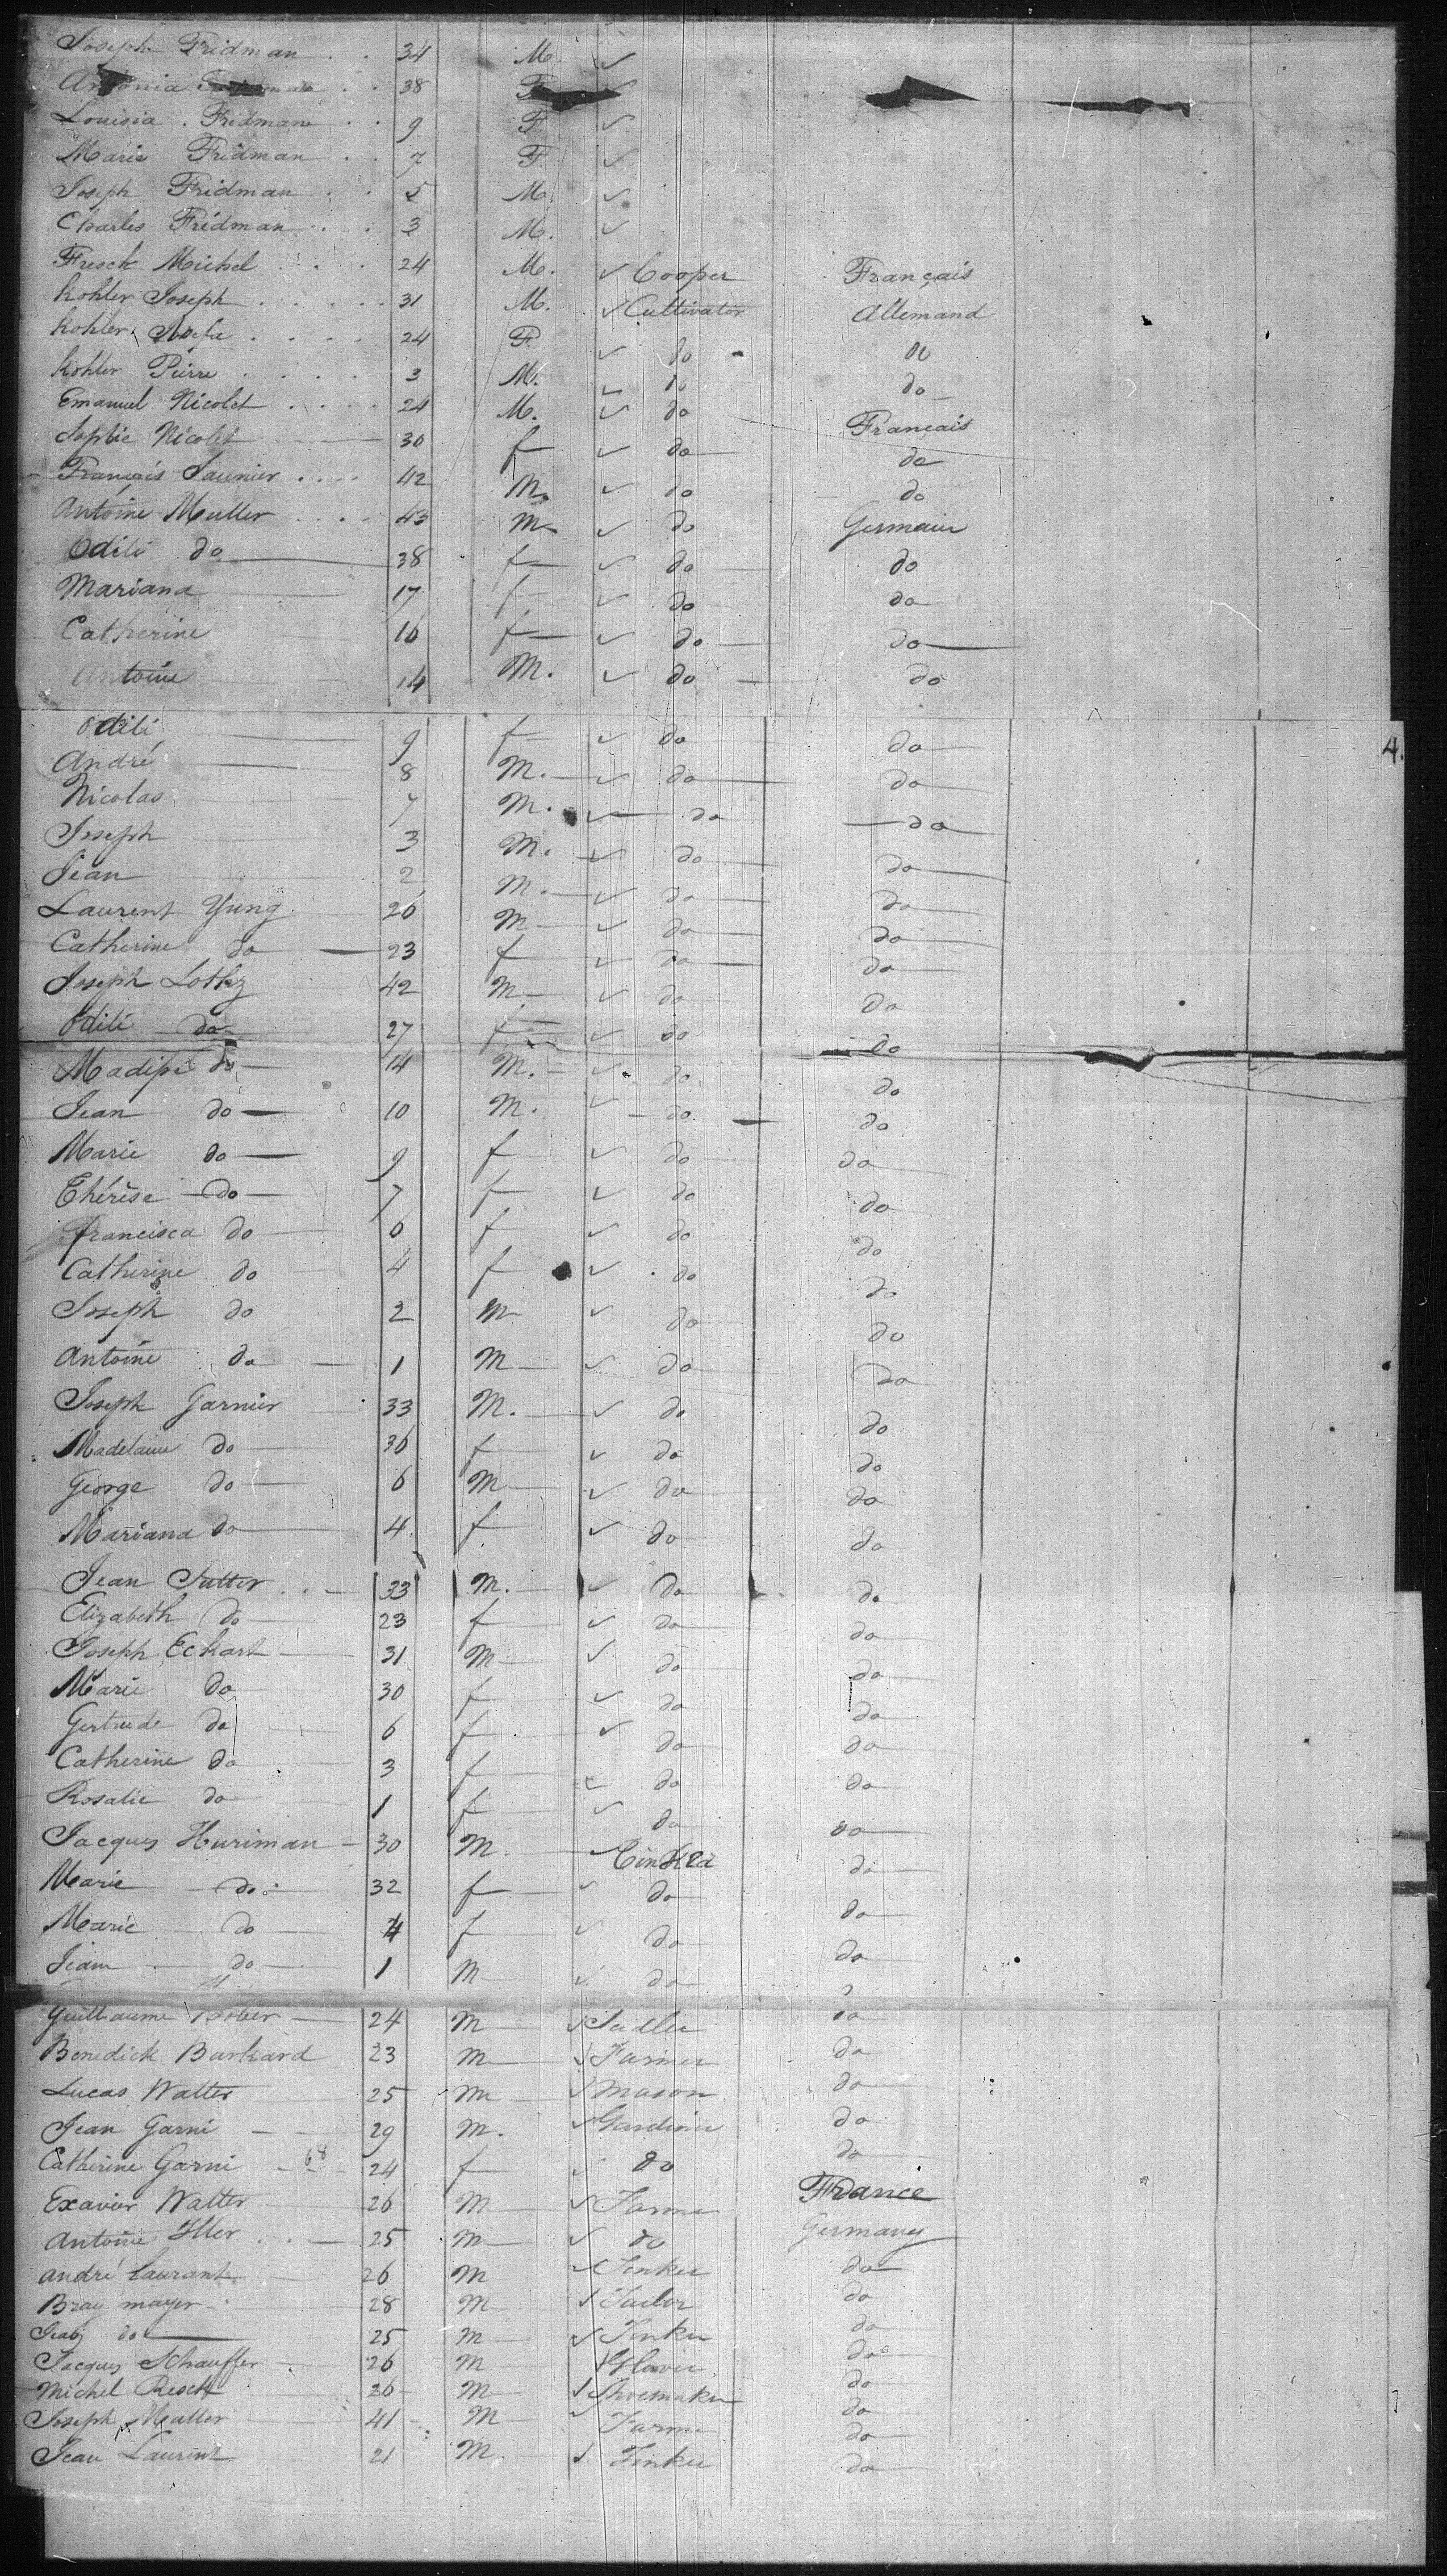 Joseph Fridman . . 34 M ✓
Antonia . . 38 F ✓
Louisia . Fridman . . 9 F ✓
Marie Fridman . . 7 F ✓
Joseph Fridman . . 5 M. ✓
Charles Fridman . . . 3 M. ✓
Fresck Michel . . . 24 M. ✓ Cooper Français
Kohler Joseph . . . . . 31 M. ✓ Cultivator Allemand
Kohler . . . . 24 F. ✓ do do
Kohler Pierre . . . . 3 M. ✓ do do
Emanuel Nicolet . . . . 24 M. ✓ do Français
Sophie Nicolet 30 f ✓ do do
François Saunier . . . . 42 M. ✓ do do
Antoine Muller . . . . 43 M ✓ do Germain
Odili do 38 f ✓ do do
Mariana 17 f ✓ do do
Catherine 16 f ✓ do do
Antoine 14 M. ✓ do do
Odili 9 f ✓ do do
4.
André 8 M. ✓ do do
Nicolas 7 M. ✓ do do
Joseph 3 M. ✓ do do
Jean 2 M. ✓ do do
Laurent Yung 26 M ✓ do do
Catherine do 23 f ✓ do do
Joseph Lothz 42 M ✓ do do
Odili do 27 f ✓ do do
do 14 M. ✓ do do
Jean do 10 M. ✓ do do
Marie do 9 f ✓ do do
Thérèse do 7 f ✓ do do
Francisca do 6 f ✓ do do
Catherine do 4 f ✓ do do
Joseph do 2 M ✓ do do
Antoine do 1 M ✓ do do
Joseph Garnier 33 M. ✓ do do
Madelaine do 36 f ✓ do do
George do 6 M ✓ do do
Mariana do 4 f ✓ do do
Jean Sutter . . 33 M. ✓ do do
Elizabeth do 23 f ✓ do do
Joseph Eckart 31 M ✓ do do
Marie do 30 f ✓ do do
Gertrude do 6 f ✓ do do
Catherine do 3 f ✓ do do
Rosalie do 1 f ✓ do do
Jacques Huriman 30 M. ✓ do
Marie do 32 f ✓ do do
Marie do 4 f ✓ do do
Jean do 1 M ✓ do do
Guillaume 24 M ✓ Sadler do
Benedick Burkard 23 M ✓ Farmer do
Lucas Walter 25 M ✓ Mason do
Jean Garni 29 M. ✓ Gardiner do
Catherine Garni 68 24 f ✓ do do
Exavier Walter 26 M ✓ Farme France
Antoine Iller . . 25 M ✓ do Germany
André Laurant 26 M ✓ Tinker do
Bray mayer 28 M ✓ Tailor do
do 25 M ✓ Tinker do
Jacques Schauffer 26 M ✓ Glover do
Michel Resch 26 M ✓ Shoemaker do
Joseph Muller 41 M ✓ Farme do
Jean Laurint 21 M. ✓ Tinker do